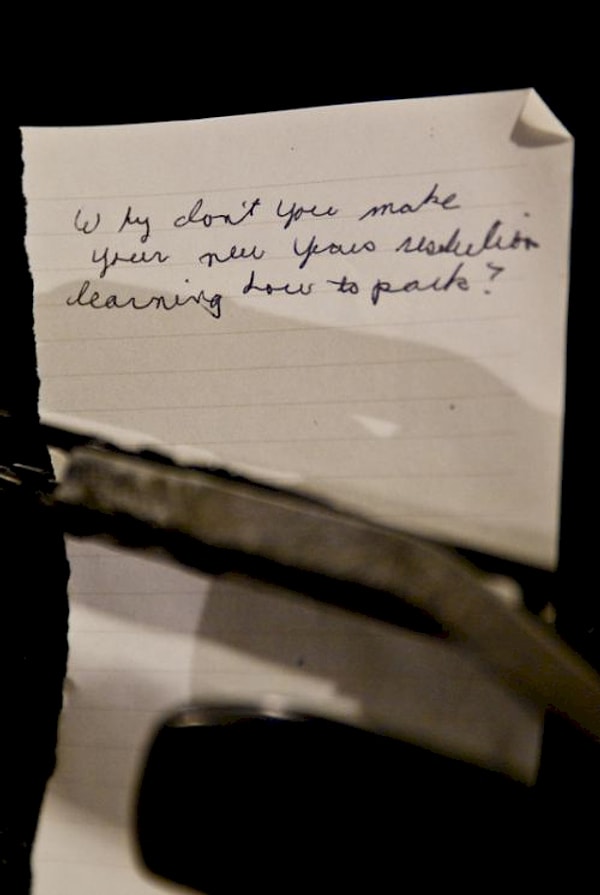 Why don't you make
your new years resolution
learning how to park?